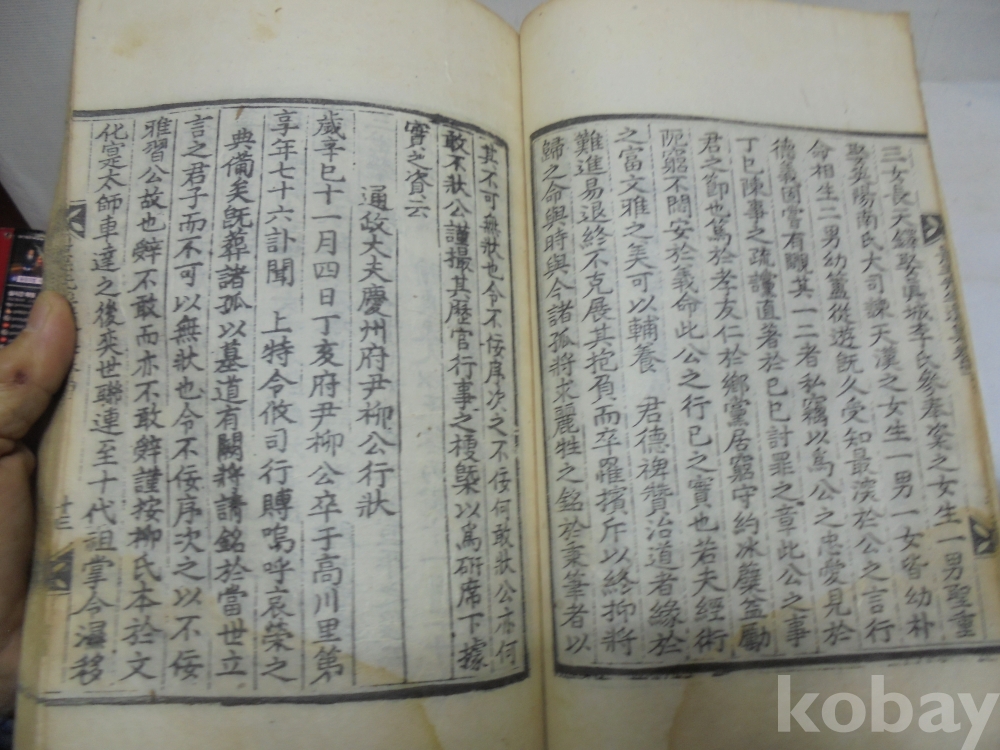 三女長天錫娶眞城李氏參奉案之女生一男聖重
娶英陽南氏大司諫天漢之女生一男一女皆幼朴
命相生二男幼簠從遊旣久受知最深於公之言行
德義固嘗有覵其一二者私竊以爲公之忠愛見於
丁巳陳事之疏謹直著於己巳討罪之章此公之事
君之節也篤於孝友仁於鄕黨居窮守約冰蘗益勵
阨窮不悶安於義命此公之行己之實也若夫經術
之富文雅之美可以輔養 君德裨贊治道者緣於
難進易退終不克展其抱負而卒罹擯斥以終抑將
歸之命與時與今諸孤將求麗牲之銘於秉筆者以
其不可無狀也令不佞序次之不佞何敢狀公亦何
敢不狀公謹撮其歷官行事之梗槩以爲硏席下據
實之資云
通政大夫慶州府尹柳公行狀
歲辛巳十一月四日丁亥府尹柳公卒于高川里第
享年七十六訃聞 上特令攸司行賻嗚呼哀榮之
典備矣旣葬諸孤以墓道有闕將請銘於當世立
言之君子而不可以無狀也令不佞序次之以不佞
雅習公故也辭不敢而亦不敢辭謹按柳氏本於文
化寔太師車達之後奕世聯連至十代祖掌令濕移
十三
kobay